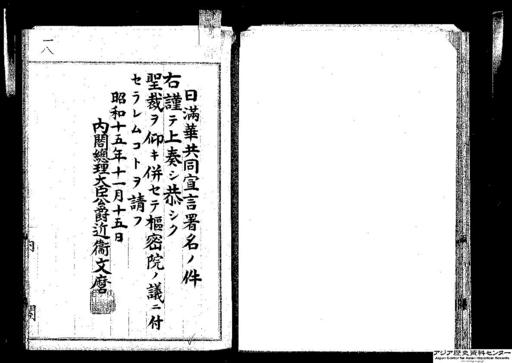 一八
日満華共同宣言署名ノ件
右謹テ上奏シ恭シク
聖裁ヲ仰キ併セテ樞密院ノ議ニ付
セラレムコトヲ請フ
昭和十五年十一月十五日
内閣總理大臣公爵近衞文麿
内閣
アジア歴史資料センター
Japan Center for Asian Historical Records